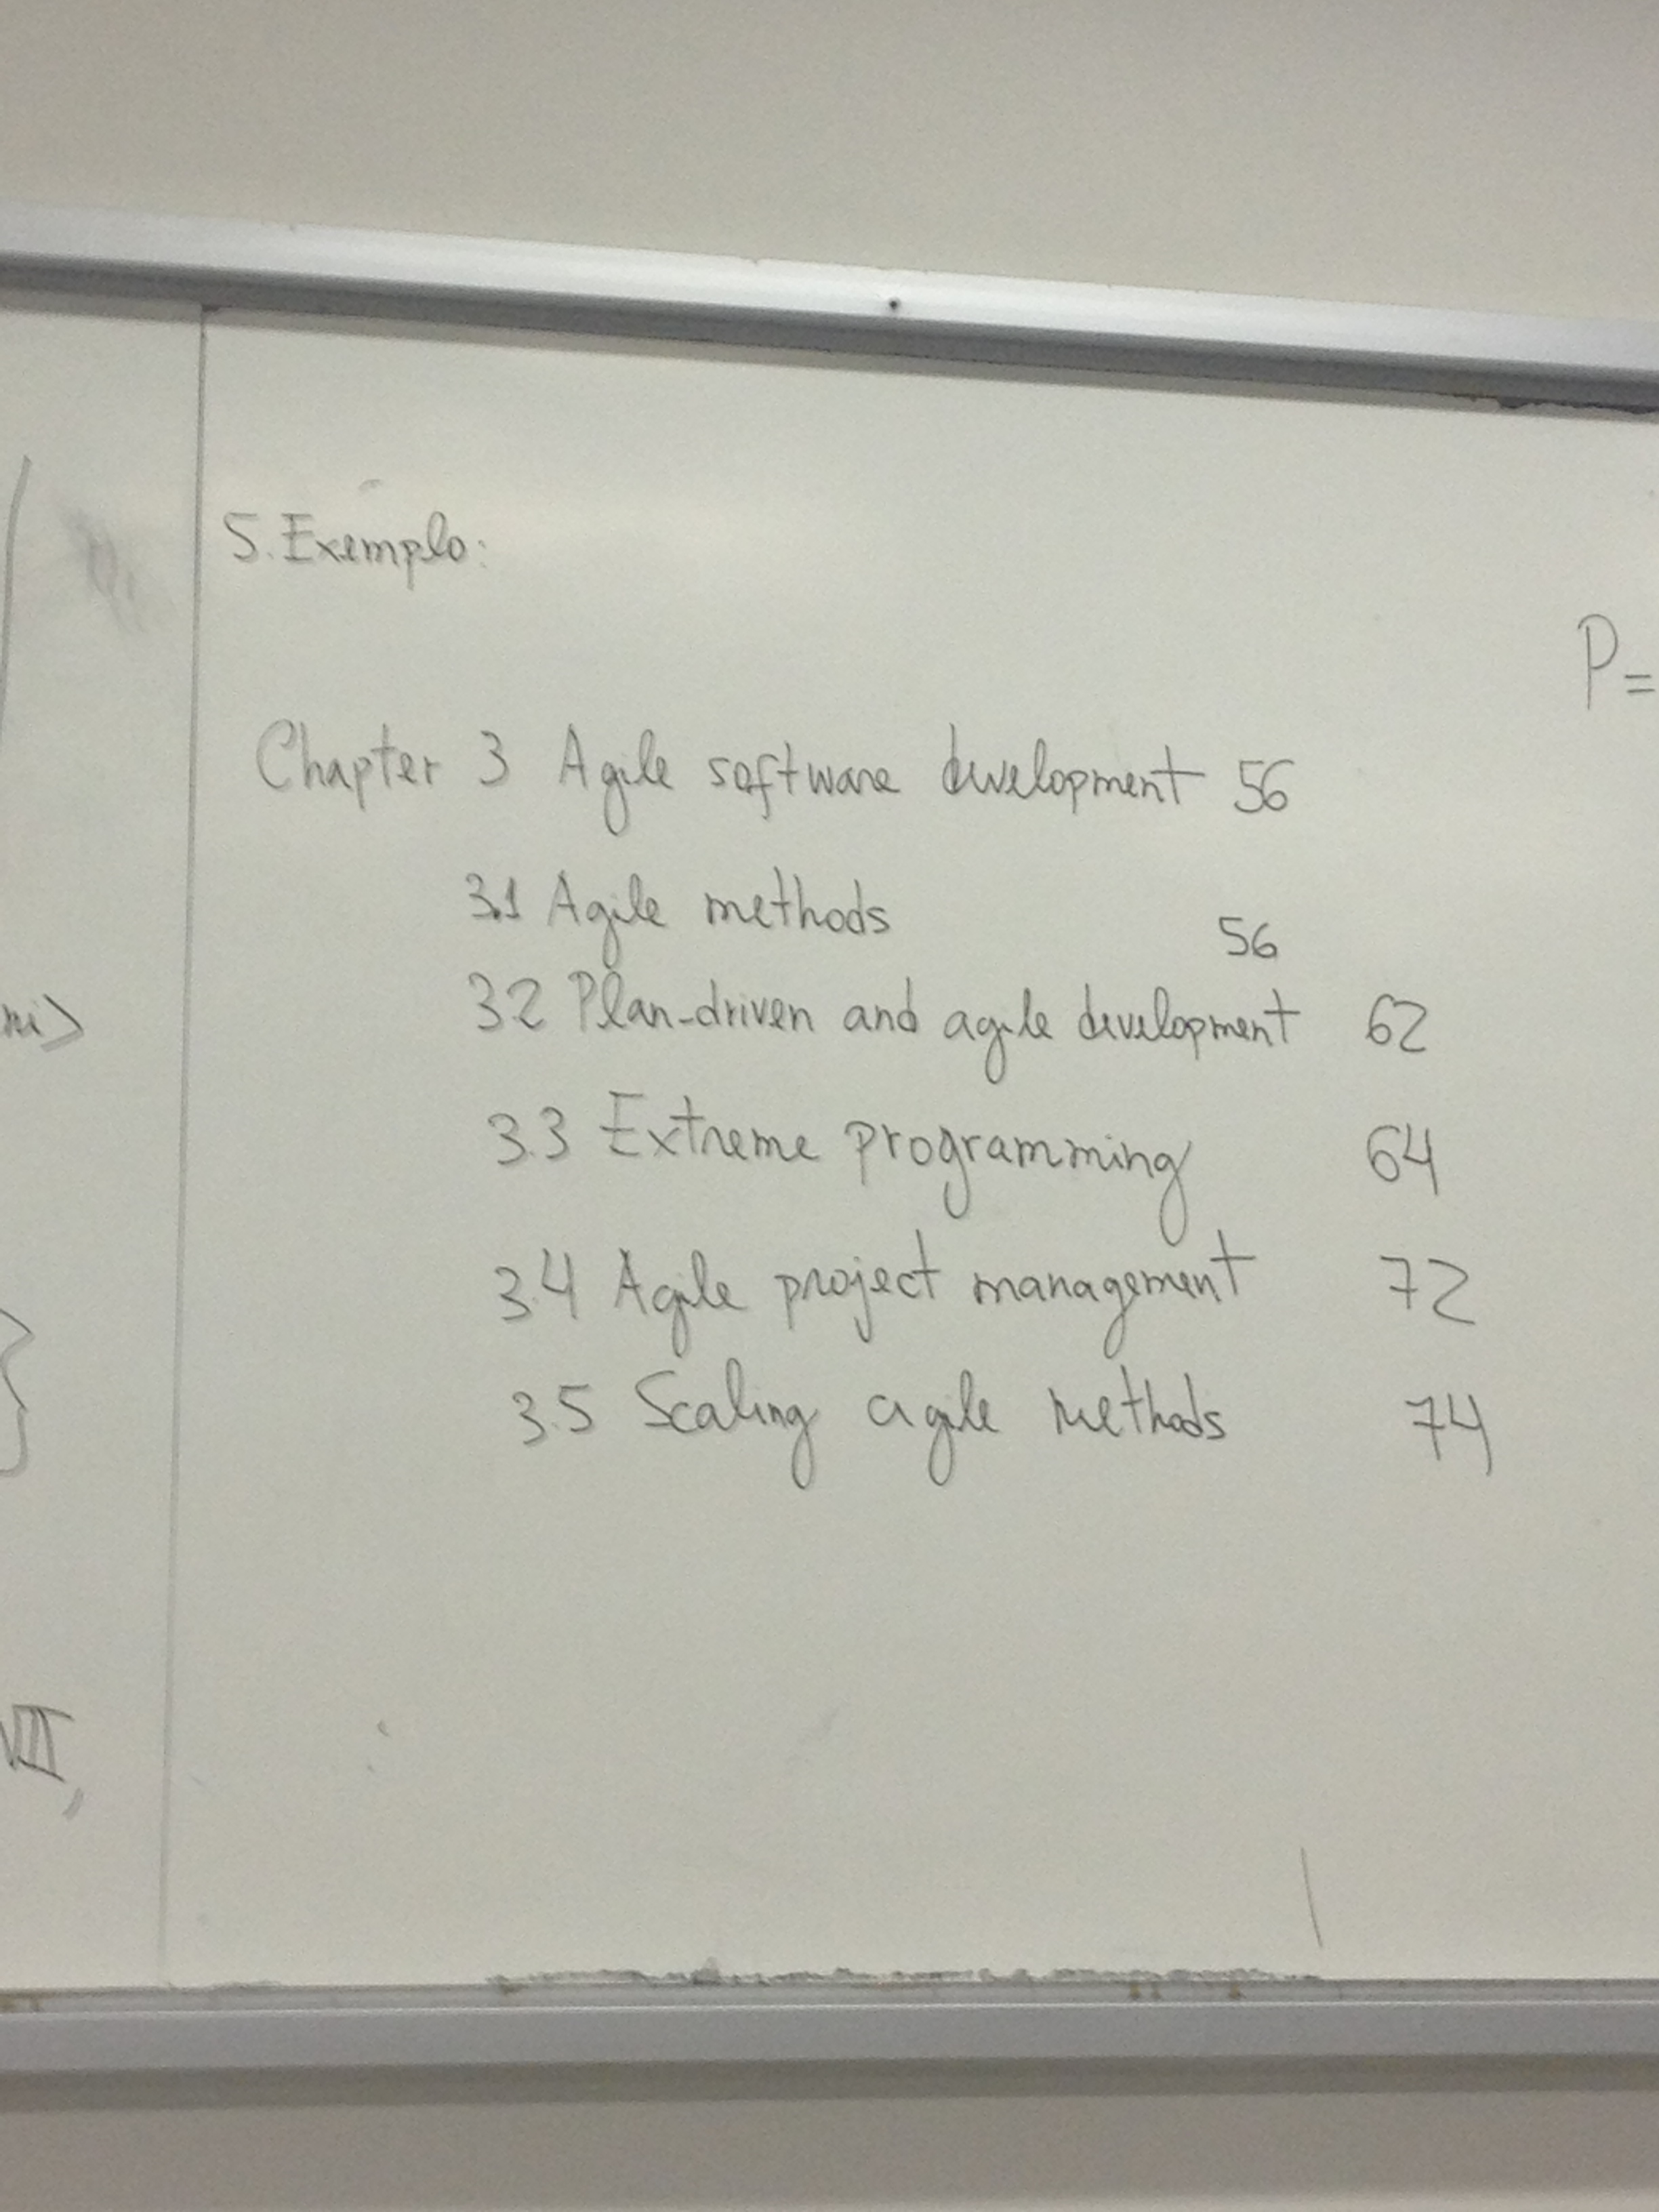 5. Exemplo:
P=
Chapter 3 Agile software development 56
3.1 Agile methods 56
3.2 Plan-driven and agile development 62
3.3 Extreme programming 64
3.4 Agile project management 72
3.5 Scaling agile methods 74
VII,